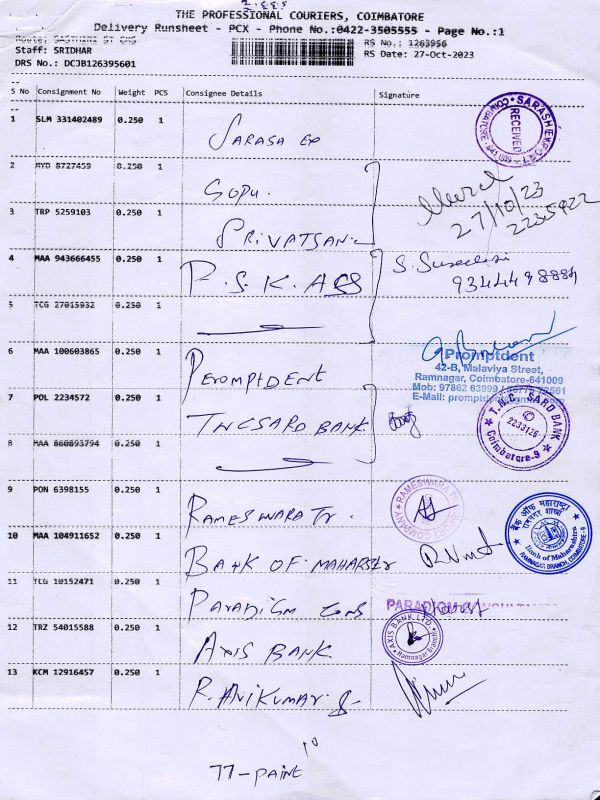 THE PROFESSIONAL COURIERS, COIMBATORE
Delivery Runsheet - PCX - Phone No.:0422-3505555 - Page No.:1
Staff: SRIDHAR
RS No.: 1263956
DRS No.: DCJB126395601
RS Date: 27-Oct-2023
S No Consignment No Weight PCS Consignee Details Signature
1 SLM 331402489 0.250 1 SARASA EXP
RECEIVED
2 HYD 8727459 0.250 1 GOPU.
27/10/23
3 TRP 5259103 0.250 1 SRIVATSAN
4 MAA 943666455 0.250 1 P.S.K. ASS
5 TCG 27015932 0.250 1
6 MAA 100603865 0.250 1 PEROMPTDENT
Promptdent
42-B, Malaviya Street,
Ramnagar, Coimbatore-641009
7 POL 2234572 0.250 1 TNCSARD BANK
T.N.C. SARD BANK
Coimbatore-9
8 MAA 860893794 0.250 1
9 PON 6398155 1 RAMESWARA Tr.
0.250
10 MAA 104911652 0.250 1 BANK OF MAHARSTR
बैंक ऑफ महाराष्ट्र
Bank of Maharashtra
RAMNAGAR BRANCH, COIMBATORE-9
11 TCG 10152471 0.250 1 PARADIGM CONS
12 TRZ 54015588 0.250 1 AXIS BANK
AXIS BANK LTD.
Ramnagar Branch
13 KCM 12916457 0.250 1 R. ANIKUMAR
77-PAINT